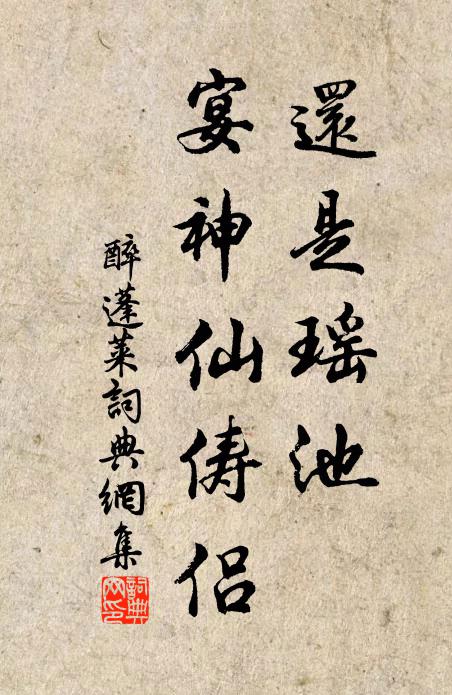 還是瑶池
宴神仙儔侶
醉蓬萊詞典網集
詞典
网印